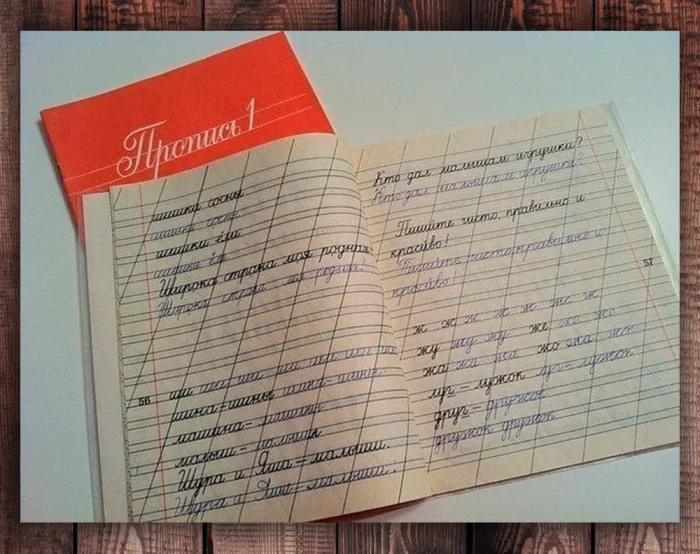 Пропись 1
шишка сосны
шишка сосны
шишки ели
шишки ели
Широка страна моя родная.
Широка страна моя родная.
56
ши ши ши ши ши ши ши
шина – шины шина – шины
машина – машины
малыш – малыши
Шура и Яша – малыши.
Шура и Яша – малыши.
Кто дал малышам игрушки?
Кто дал малышам игрушки?
Пишите чисто, правильно и
красиво!
Пишите чисто, правильно и
красиво!
57
ж ж ж ж ж ж ж
жу жу жу же же же
жа жа жа жо жо жо
луг – лужок луг – лужок
друг – дружок
дружок дружок